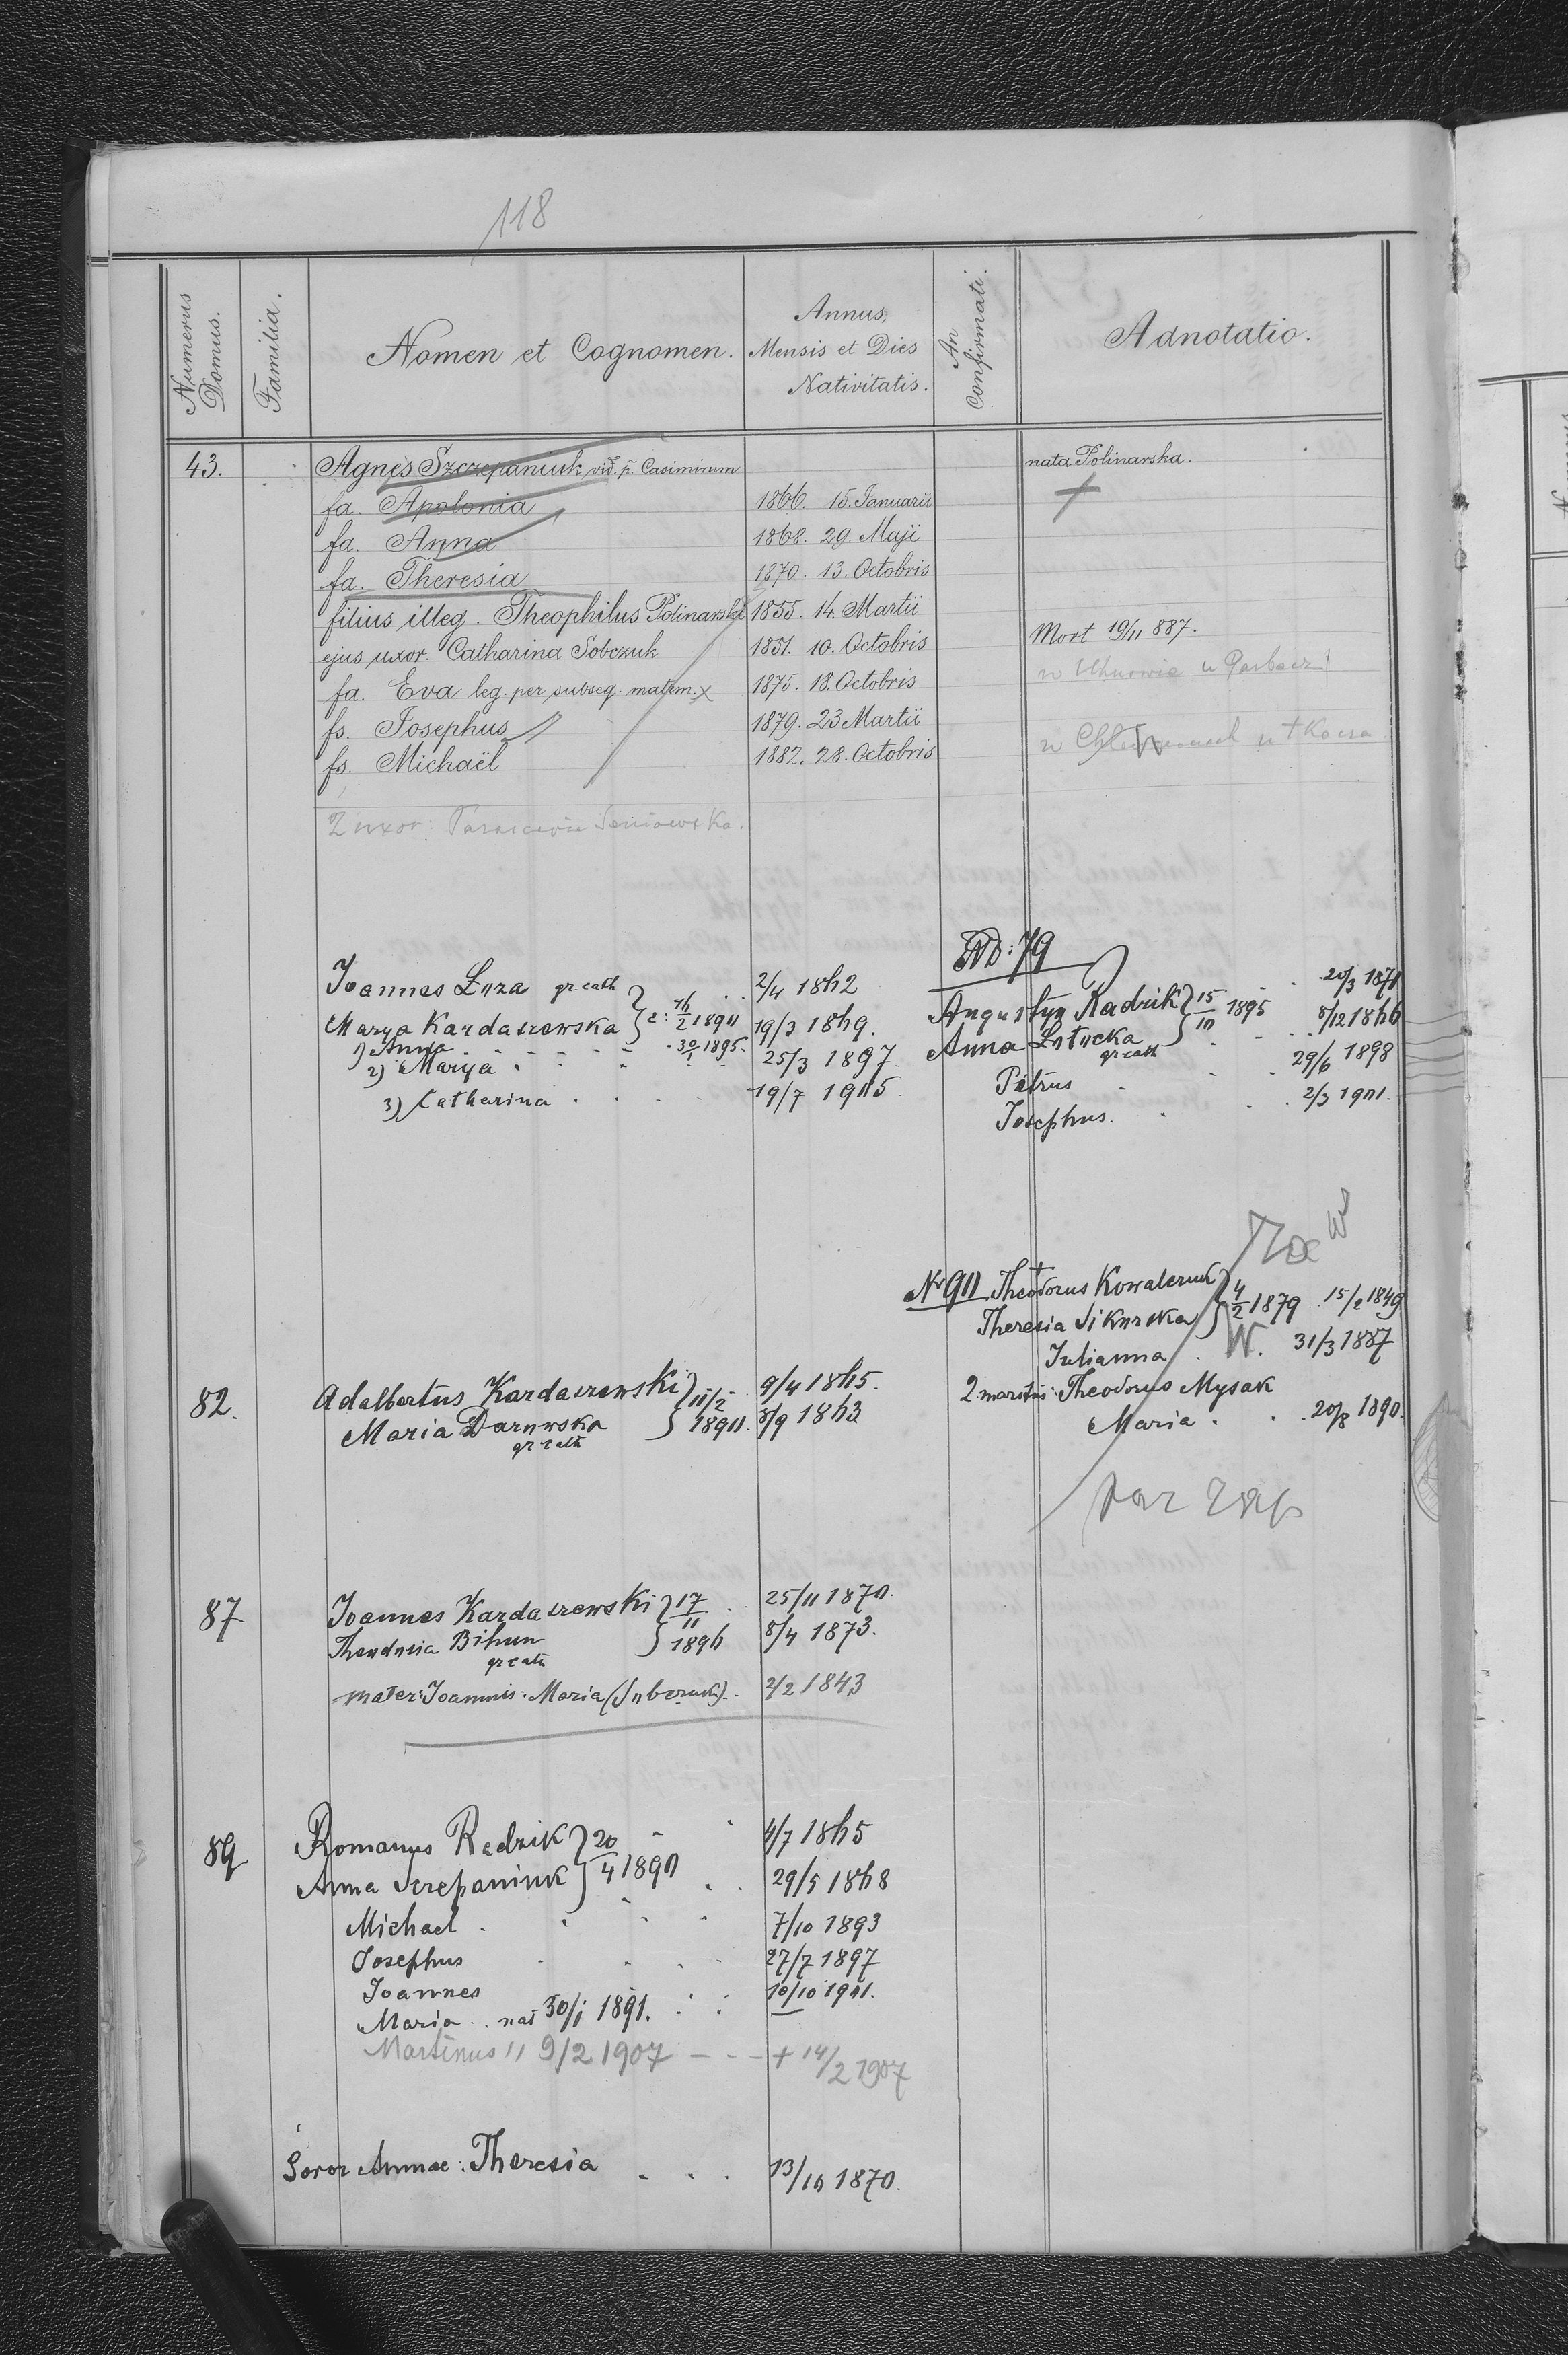 118
Numerus Domus.
Familia.
Nomen et Cognomen.
Annus, Mensis et Dies Nativitatis.
An Confirmati.
Adnotatio.
43. Agnes Szczepaniuk vid. p. Casimirum nata Polinarska.
fa. Apolonia 1866. 15. Januarii +
fa. Anna 1868. 29. Maji
fa. Theresia 1870. 13. Octobris
filius illeg. Theophilus Polinarski 1855. 14. Martii
ejus uxor. Catharina Sobczuk 1851. 10. Octobris Mort 19/11 887.
fa. Eva leg. per subseq. matrm. x 1875. 18. Octobris w Uhnowie u
fs. Josephus 1879. 23 Martii
fs. Michaël 1882. 28. Octobris w
2 uxor:
Joannes Luza gr. cath 2/4 1862
Marya Kardaszewska 16/2 1890 19/3 1869.
1) Anna 30/1 1895.
2) Marya 25/3 1897
3) Catharina 19/7 1905
ND: 79
Augustyn Radzik } 15/10 1895 20/3 1871
Anna 8/12 1866
gr cath
Petrus 29/6 1898
Josephus. 2/3 1901.
Nr 90 Theodorus Kowalczuk } 4/2 1879 15/2 1849
Theresia Sikorska
Julianna W. 31/3 1887
2 maritus: Theodorus Mysak
Maria 20/8 1890.
82. Adalbertus Kardaszewski } 10/2 1890. 9/4 1865.
Maria Darowska 8/9 1863
gr cath
87 Joannes Kardaszewski } 17/11 1896 25/11 1870.
Theodosia Bihun 8/4 1873.
gr cath
mater: Joannis: Maria (Sobczuk) 2/2 1843
89 Romanus Radzik } 20/4 1890 4/7 1865
Anna Szczepaniuk 29/5 1868
Michael 7/10 1893
Josephus 27/7 1897
Joannes 10/10 1901.
Maria nat 30/1 1891.
Martinus " 9/2 1907 - - - + 14/2 1907
Soror Annae: Theresia 13/10 1870.